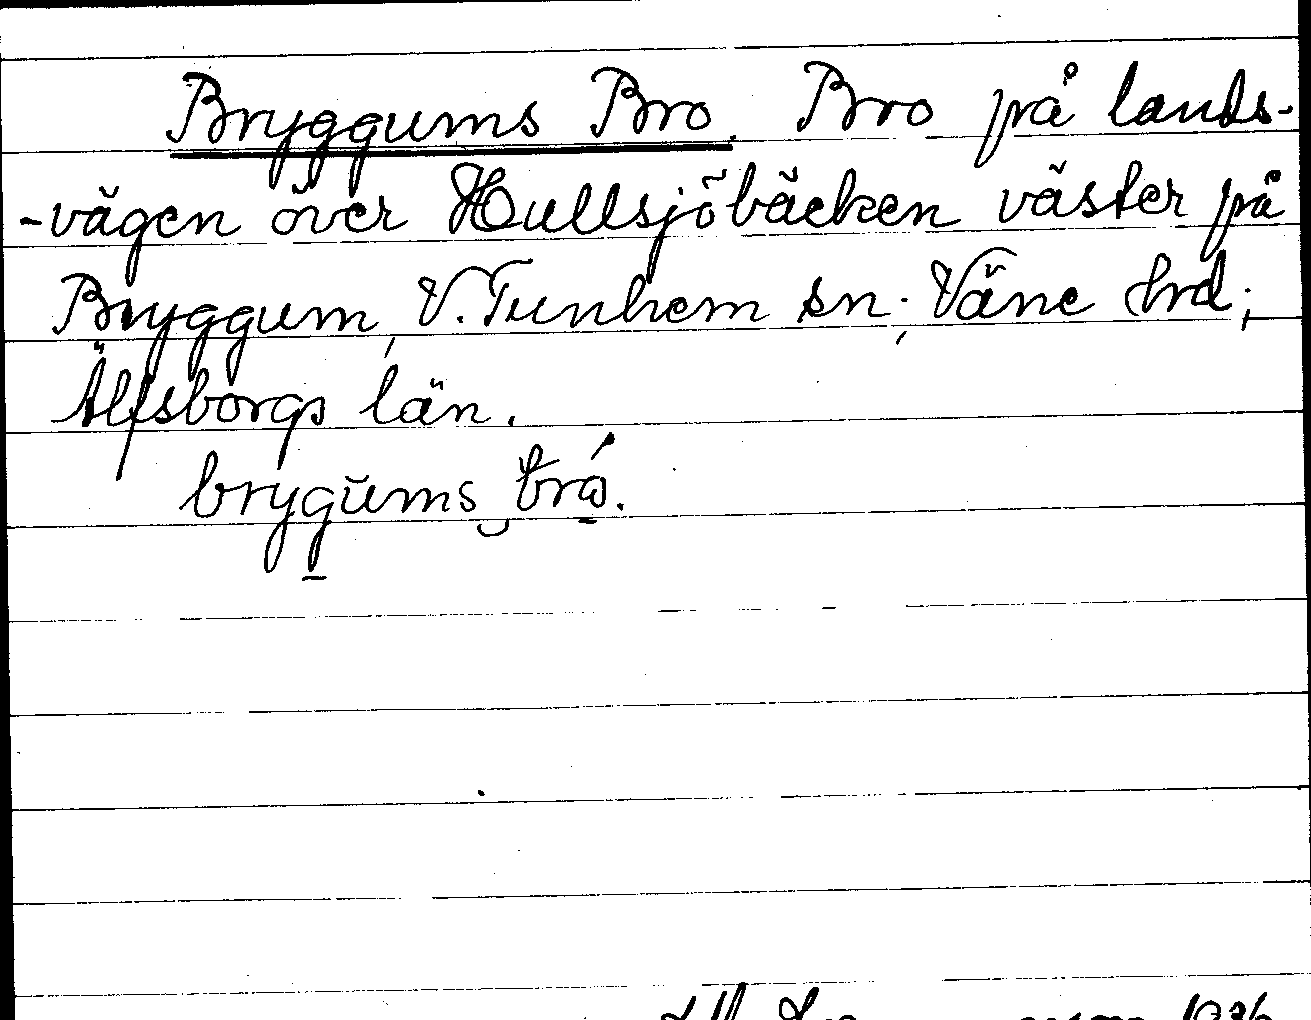 Bryggums Bro. Bro på lands-
-vägen över Hullsjöbäcken väster på
Bryggum, V. Tunhem sn; Väne hrd;
Älfsborgs län.
brygŭms bró.
1936